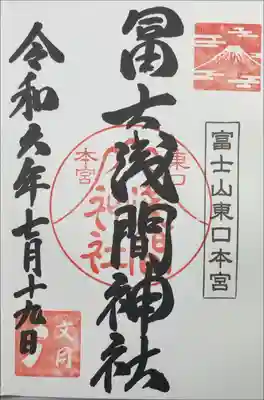 富士山東口本宮
冨士浅間神社
東口
本宮
令和六年七月十九日
文月